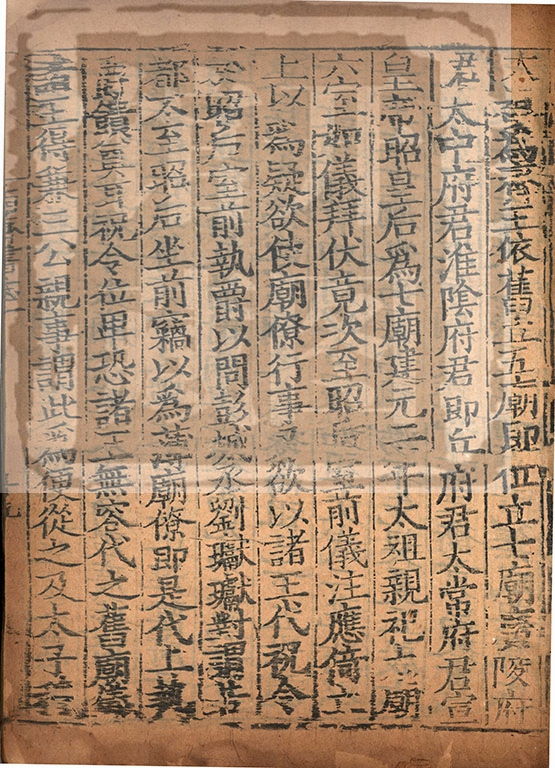 太祖爲齊王依舊立五廟即位立七廟廣陵府
君太中府君淮陰府君即丘府君太常府君宣
皇帝昭皇后爲七廟建元二年太祖親祀太廟
六室如儀拜伏竟次至昭后室前儀注應倚立
上以爲疑欲使廟僚行事又欲以諸王代祝令
於昭后室前執爵以問彭城丞劉瓛瓛對謂若
都不至昭后坐前竊以爲薄廟僚即是代上執
爵饋奠耳祝令位卑恐諸王無容代之舊廟儀
諸王得兼三公親事謂此爲便從之及太子